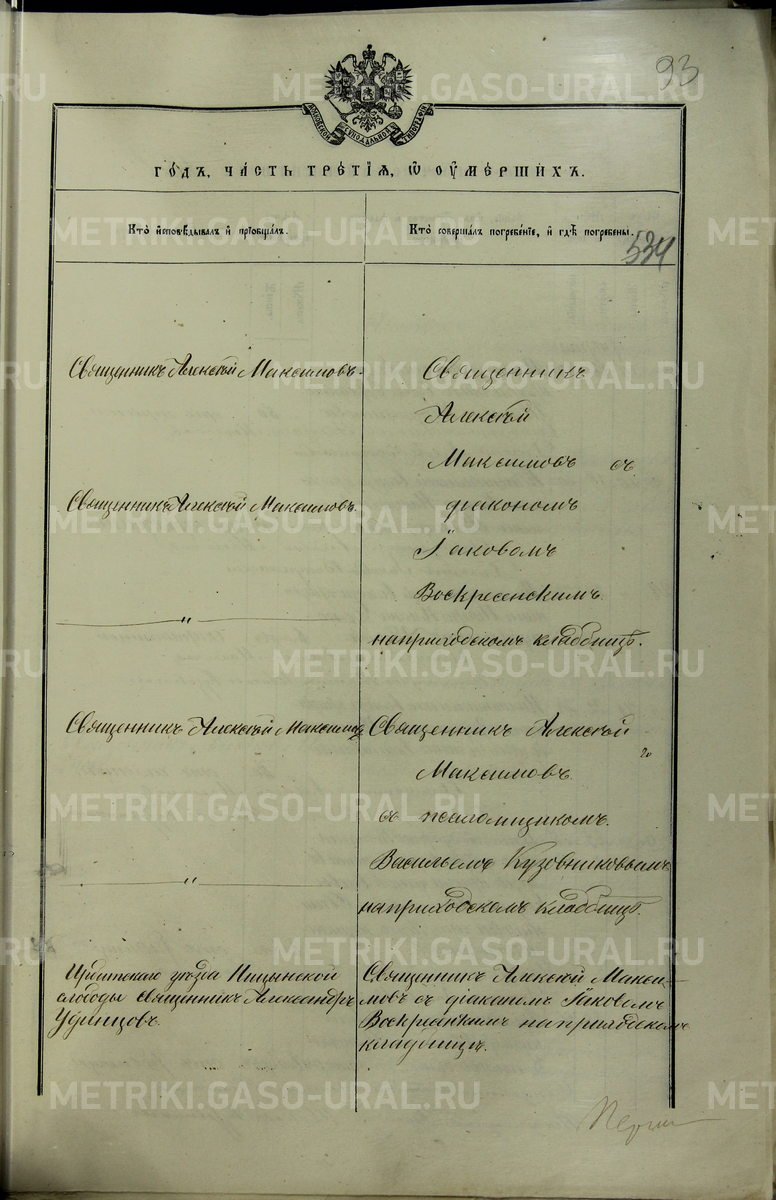 93
годъ, часть третїѧ, ѡ оумершихъ.
Кто исповѣдывалъ и прїобщалъ.
Кто совершалъ погребенїе, и гдѣ погребены.
534
Священникъ Алексѣй Максимовъ.
Священникъ
Алексѣй
Максимовъ съ
Священникъ Алексѣй Максимовъ.
діакономъ
Іаковомъ
Воскресенскимъ
"
на приходскомъ кладбищѣ.
Священникъ Алексѣй Максимовъ
Священникъ Алексѣй
Максимовъ
съ псаломщикомъ
Васильемъ Кузовниковымъ
"
на приходскомъ кладбищѣ.
Ирбитскаго уѣзда Ницынской
слободы священникъ Александръ
Удинцовъ.
Священникъ Алексѣй Макси-
мовъ съ діакономъ Іаковомъ
Воскресенскимъ на приходскомъ
кладбищѣ.
METRIKI.GASO-URAL.RU